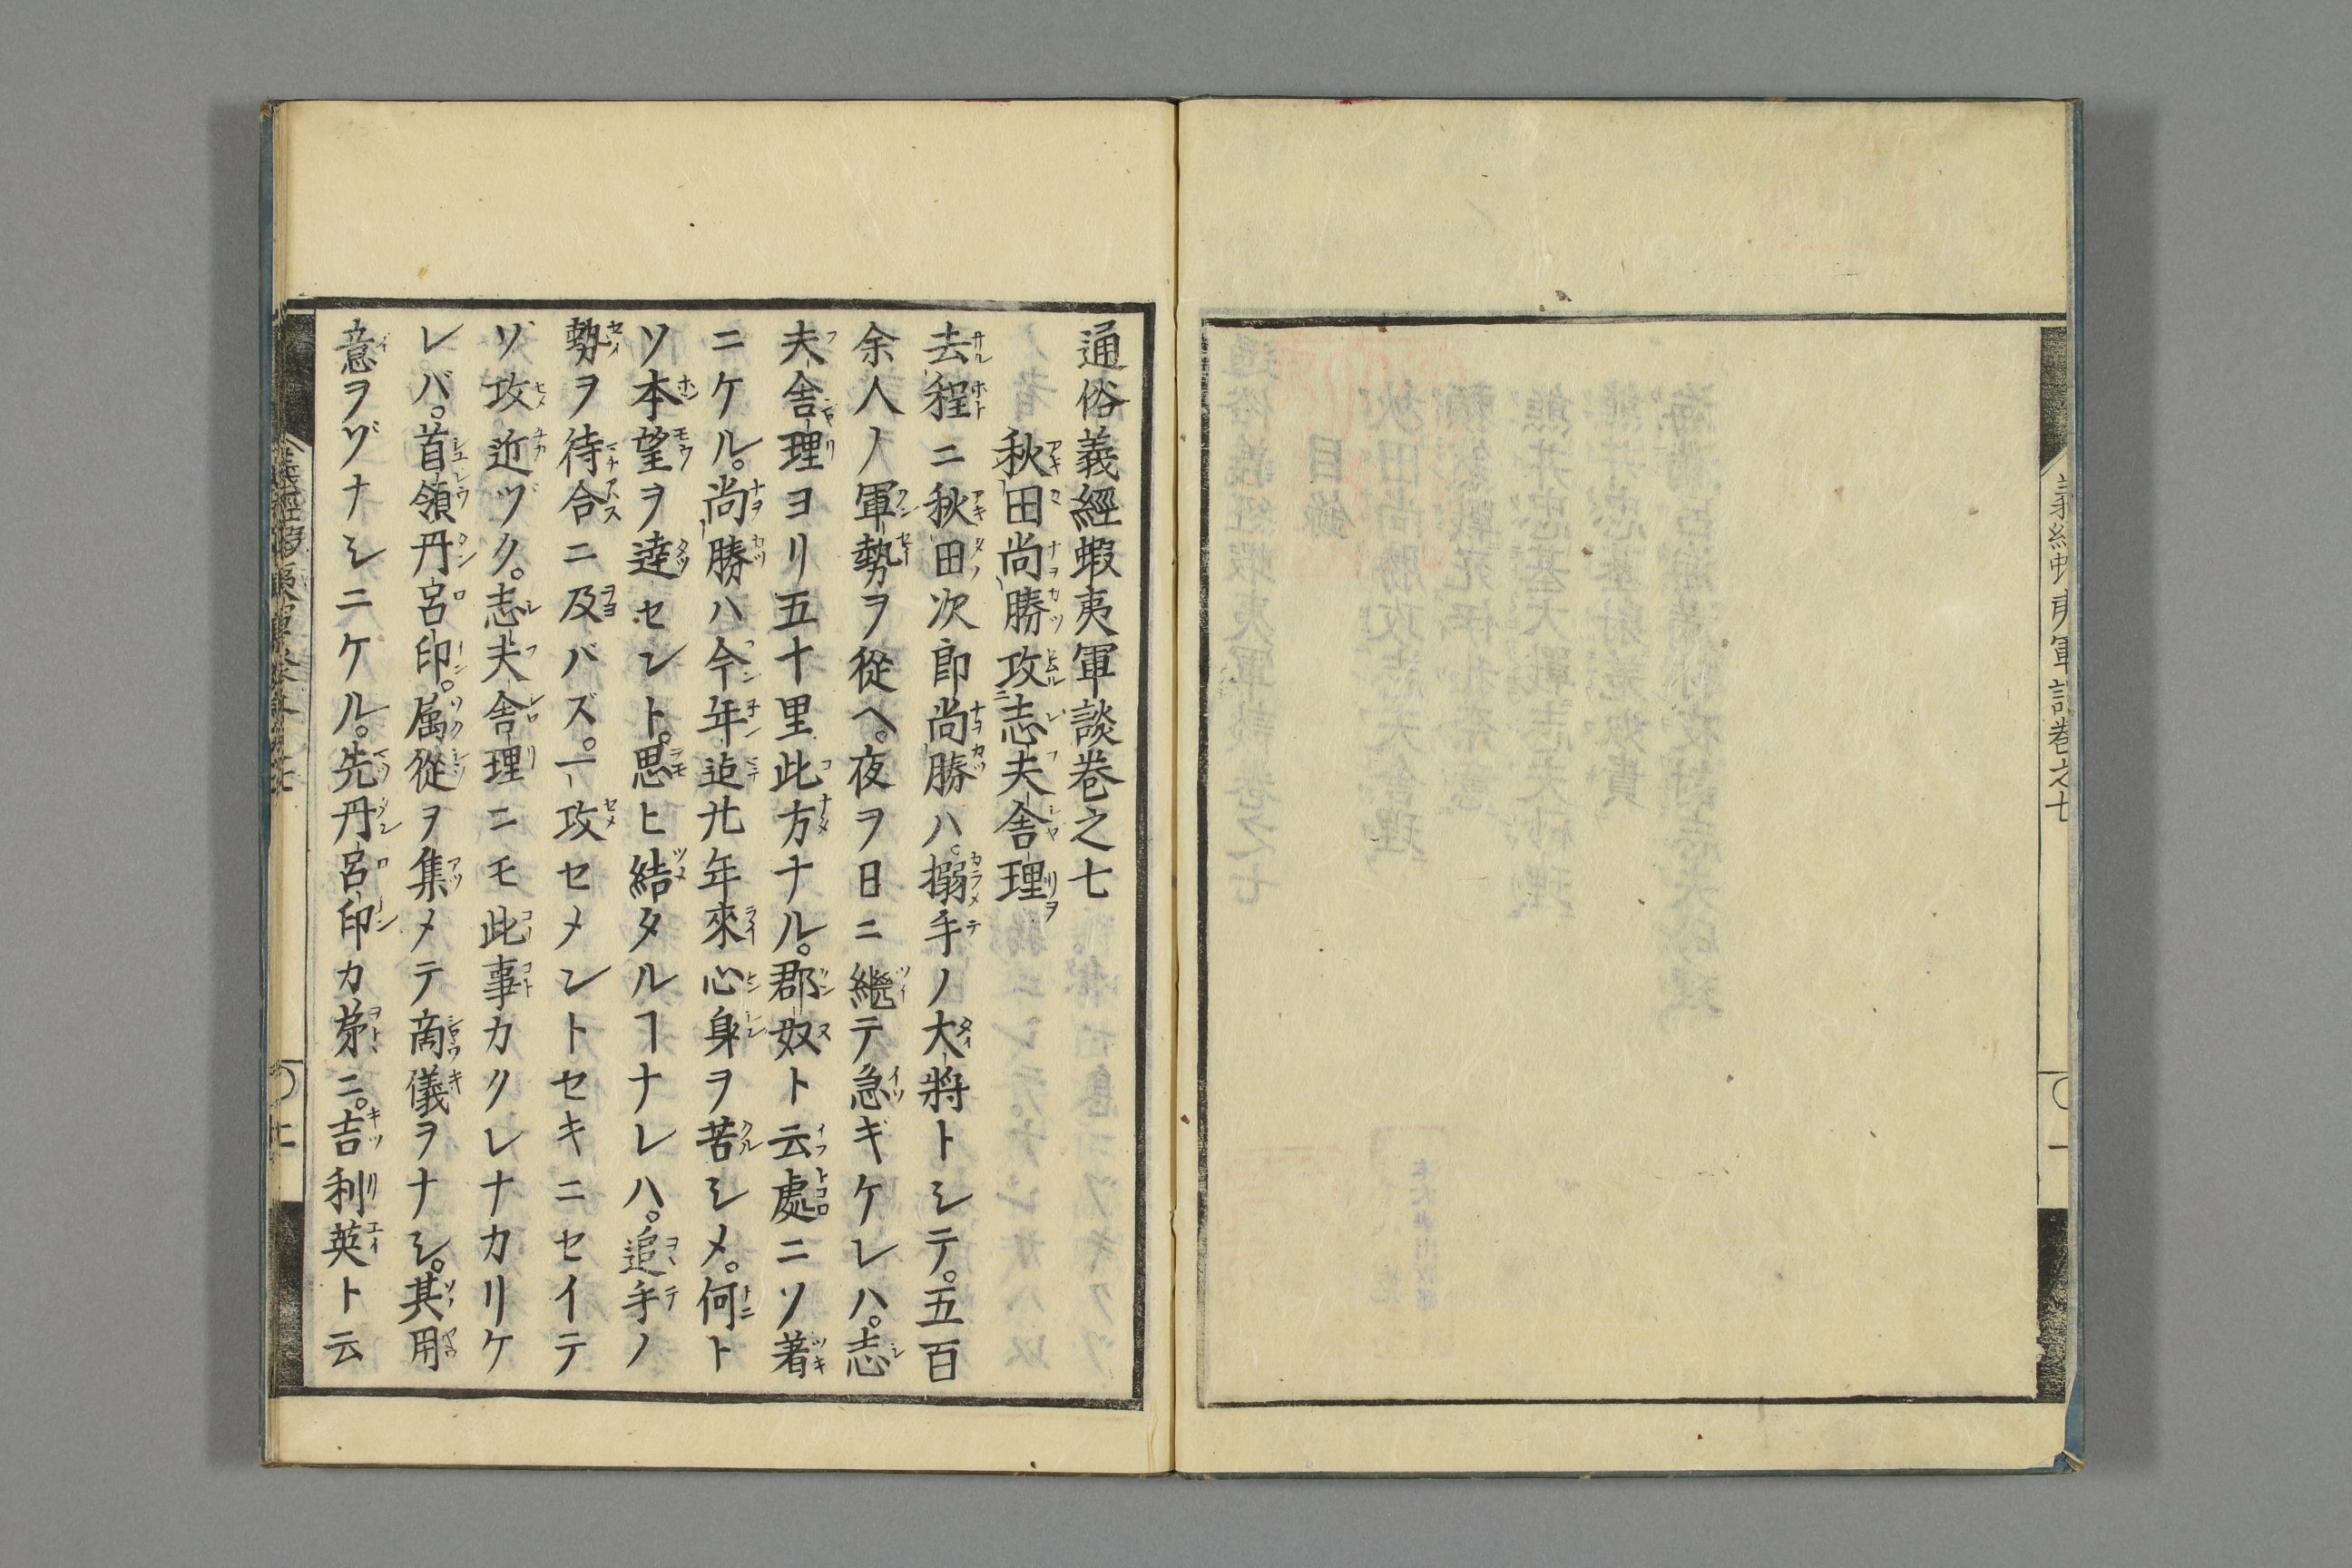 通俗義經蝦夷軍談巻之七
秋田尚勝攻志夫舎理
去程ニ秋田次郎尚勝ハ。搦手ノ大将トシテ。五百
余人ノ軍勢ヲ從ヘ。夜ヲ日ニ継テ急ギケレハ。志
夫舎理ヨリ五十里此方ナル。郡奴ト云處ニソ著
ニケル。尚勝ハ今年迠廾年來心身ヲ苦シメ。何ト
ソ本望ヲ達セント。思ヒ結タルヿナレハ。追手ノ
勢ヲ待合ニ及バズ。一攻セメントセキニセイテ
ゾ攻近ヅク。志夫舎理ニモ此事カクレナカリケ
レバ。首領丹呂印。属從ヲ集メテ商儀ヲナシ。其用
意ヲゾナシニケル。先丹呂印カ弟ニ。吉利英ト云